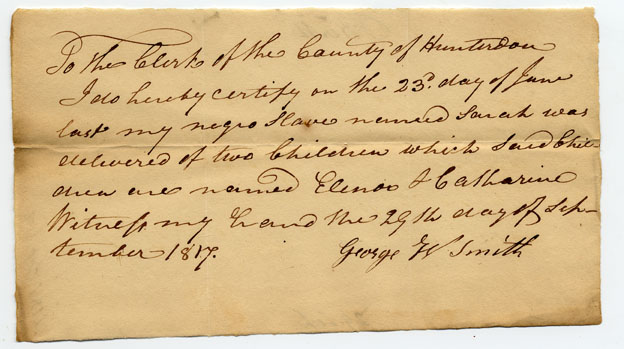 To the Clerk of the County of Hunterdon
I do hereby certify on the 23d. day of June
last my negro Slave named Sarah was
delivered of two Children which said Chil-
dren are named Elenor & Catharine
Witness my hand the 29th day of Sep-
tember 1817. George W Smith